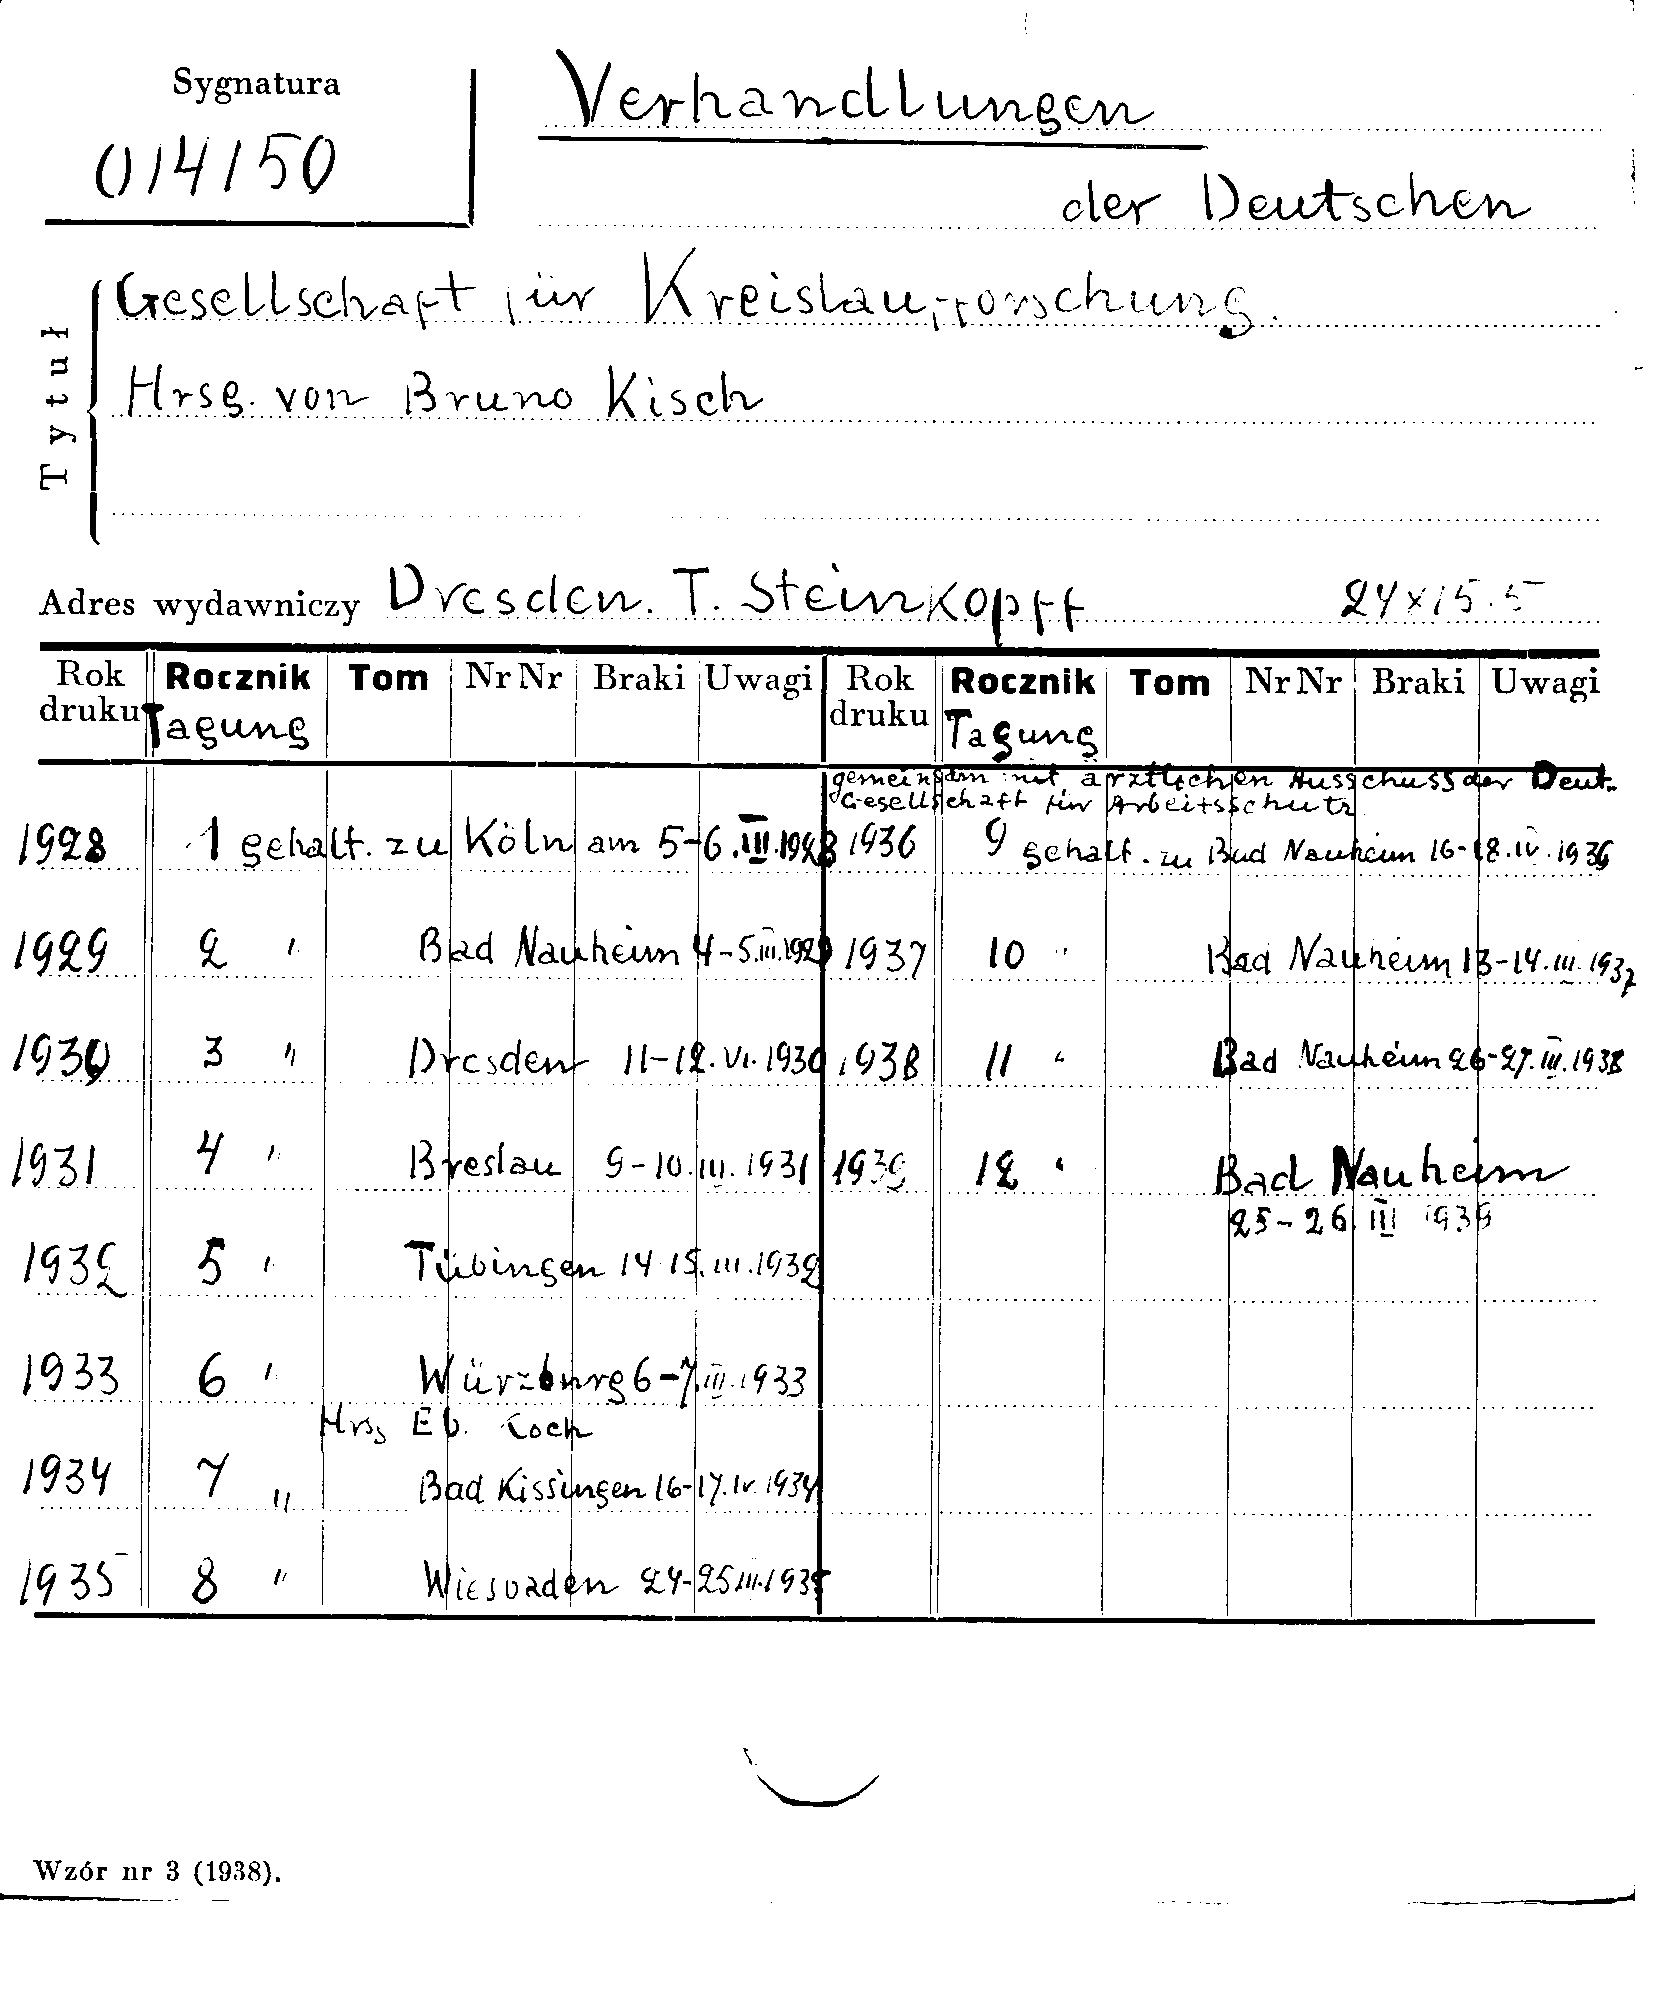 Sygnatura
014150
Verhandlungen
der Deutschen
Tytuł
Gesellschaft für Kreislaufforschung.
Hrsg. von Bruno Kisch
Adres wydawniczy Dresden. T. Steinkopff 24x15.5
Rok druku Rocznik Tom Nr Nr Braki Uwagi Rok druku Rocznik Tom Nr Nr Braki Uwagi
Tagung Tagung
gemeinsam mit ärztlichen Ausschuss der Deut.
Gesellschaft für Arbeitsschutz
1928 1 gehalt. zu Köln am 5-6.III.1928 1936 9 gehalt. zu Bad Nauheim 16-18.IV.1936
1929 2 " Bad Nauheim 4-5.III.1929 1937 10 " Bad Nauheim 13-14.III.1937
1930 3 " Dresden 11-12.VI.1930 1938 11 " Bad Nauheim 26-27.III.1938
1931 4 " Breslau 9-10.III.1931 1939 12 " Bad Nauheim
25-26 III 1939
1932 5 " Tübingen 14 15.III.1932
1933 6 " Würzburg 6-7.III.1933
Hrsg Eb. Koch
1934 7 " Bad Kissingen 16-17.IV.1934
1935 8 " Wiesbaden 24-25 III.1935
Wzór nr 3 (1938).